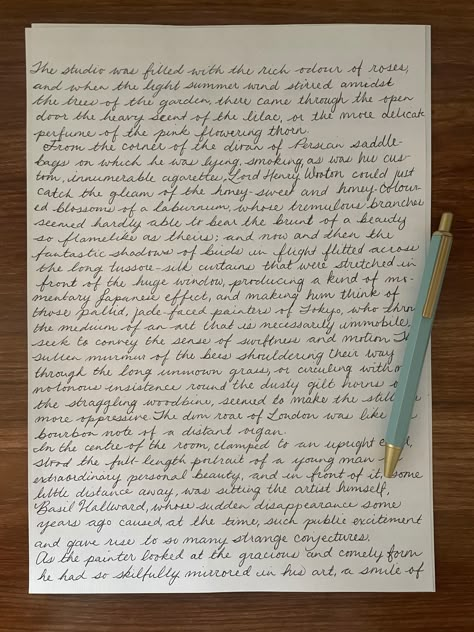 The studio was filled with the rich odour of roses,
and when the light summer wind stirred amidst
the trees of the garden, there came through the open
door the heavy scent of the lilac, or the more delicate
perfume of the pink flowering thorn.
From the corner of the divan of Persian saddle-
bags on which he was lying, smoking, as was his cus-
tom, innumerable cigarettes, Lord Henry Wotton could just
catch the gleam of the honey-sweet and honey-colour-
ed blossoms of a laburnum, whose tremulous branches
seemed hardly able to bear the brunt of a beauty
so flamelike as theirs; and now and then the
fantastic shadows of birds in flight flitted across
the long tussore-silk curtains that were stretched in
front of the huge window, producing a kind of mo-
mentary Japanese effect, and making him think of
those pallid, jade-faced painters of Tokyo, who
the medium of an art that is necessarily immobile,
seek to convey the sense of swiftness and motion.
sullen murmur of the bees shouldering their way
through the long unmown grass, or circling with
motonous insistence round the dusty gilt horns
the straggling woodbine, seemed to make the
more oppressive. The dim roar of London was like
bourbon note of a distant organ.
In the centre of the room, clamped to an upright
stood the full-length portrait of a young man
extraordinary personal beauty, and in front of it, some
little distance away, was sitting the artist himself,
Basil Hallward, whose sudden disappearance some
years ago caused, at the time, such public excitement
and gave rise to so many strange conjectures.
As the painter looked at the gracious and comely form
he had so skilfully mirrored in his art, a smile of